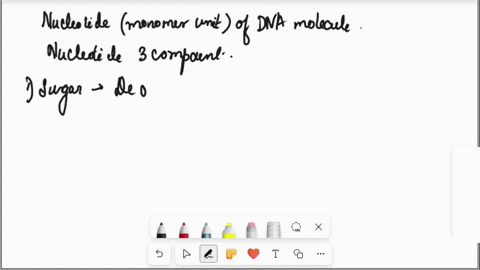 Nucleotide (monomer unit) of DNA molecule.
Nucleotide 3 compount.
1) Sugar → Deo